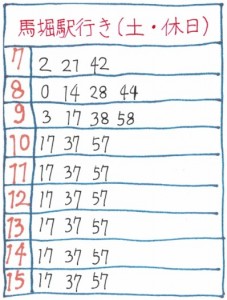 馬堀駅行き(土・休日)
7 2 27 42
8 0 14 28 44
9 3 17 38 58
10 17 37 57
11 17 37 57
12 17 37 57
13 17 37 57
14 17 37 57
15 17 37 57